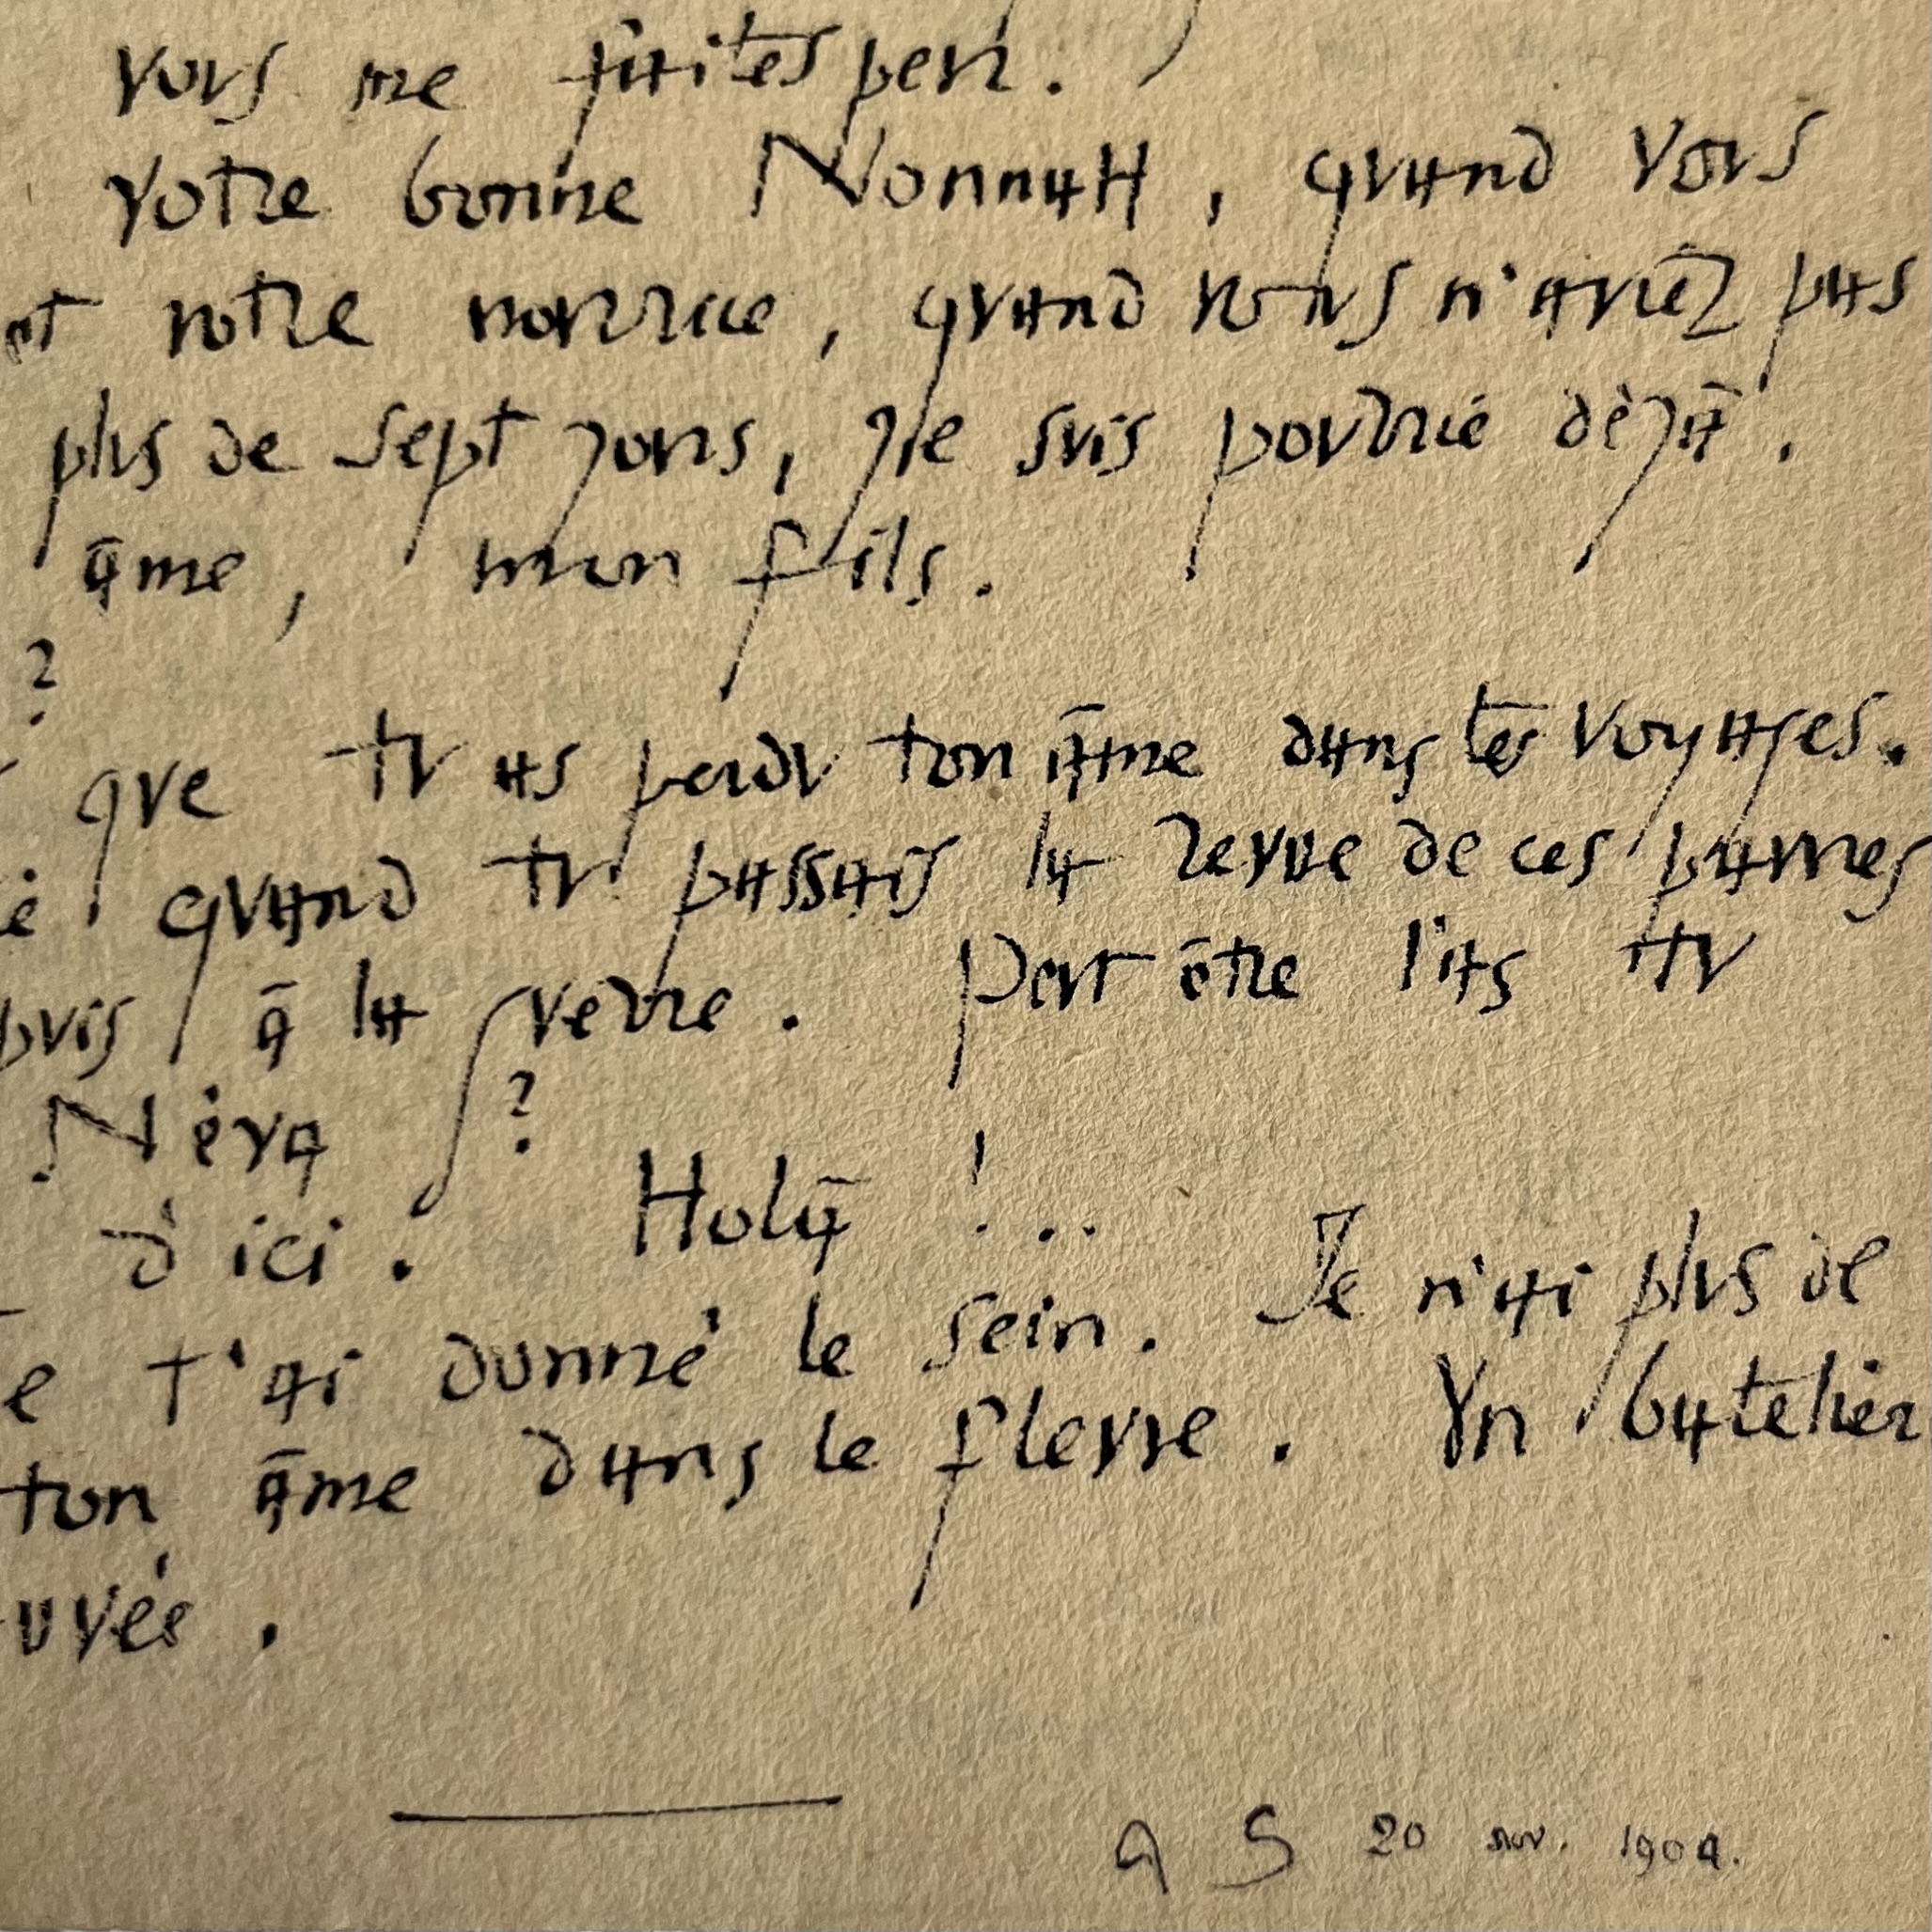 Vous me faites peur.
Votre bonne Nonnah, quand vous
et votre nourrice, quand vous n'aviez pas
plus de sept jours, Je suis pourrie déjà.
âme, mon fils.
?
que tu as perdu ton âme dans tes voyages.
é quand tu passais la revue de ces parmes
puis à la guerre. Peut être l'as tu
Néva ?
d'ici. Holà !...
e t'ai donné le sein. Je n'ai plus de
ton âme dans le fleuve. Un batelier
uvée.
A S 20 nov. 1904.